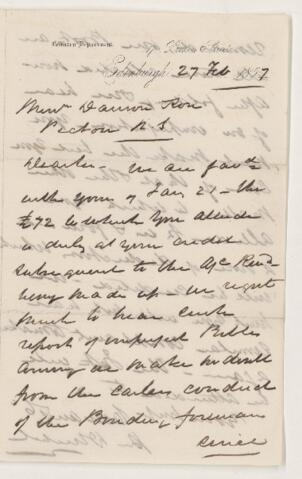 Edinburgh 27 Feb 1857
Messrs Dawson & Son
Pictou N S
Dear Sirs - We are favd
with yours of Jany 21 - the
£72 to which you allude
is duly at your credit
subsequent to the A/c
being made up - we regret
much to hear such
report of imperfect Bibles
arising we make no doubt
from the careless conduct
of the Binding foreman
since